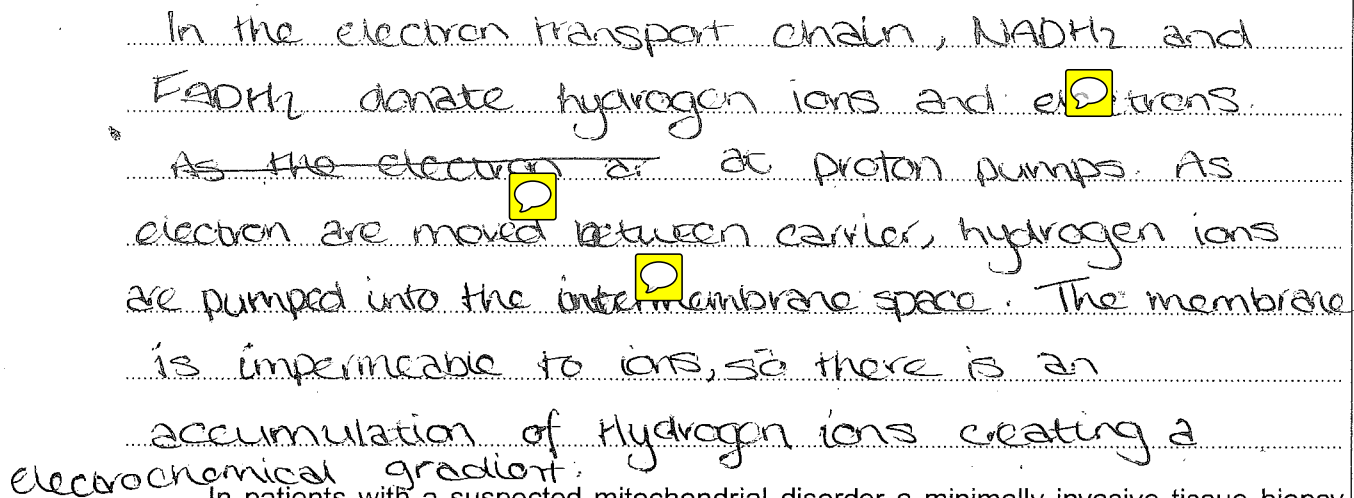 In the electron transport chain, NADH2 and
FADH2 donate hydrogen ions and electrons.
As the electron ar at proton pumps. As
electron are moved between carrier, hydrogen ions
are pumped into the intermembrane space. The membrane
is impermeable to ions, so there is an
accumulation of Hydrogen ions creating a
electrochemical gradient.
In patients with a suspected mitochondrial disorder a minimally invasive tissue biopsy